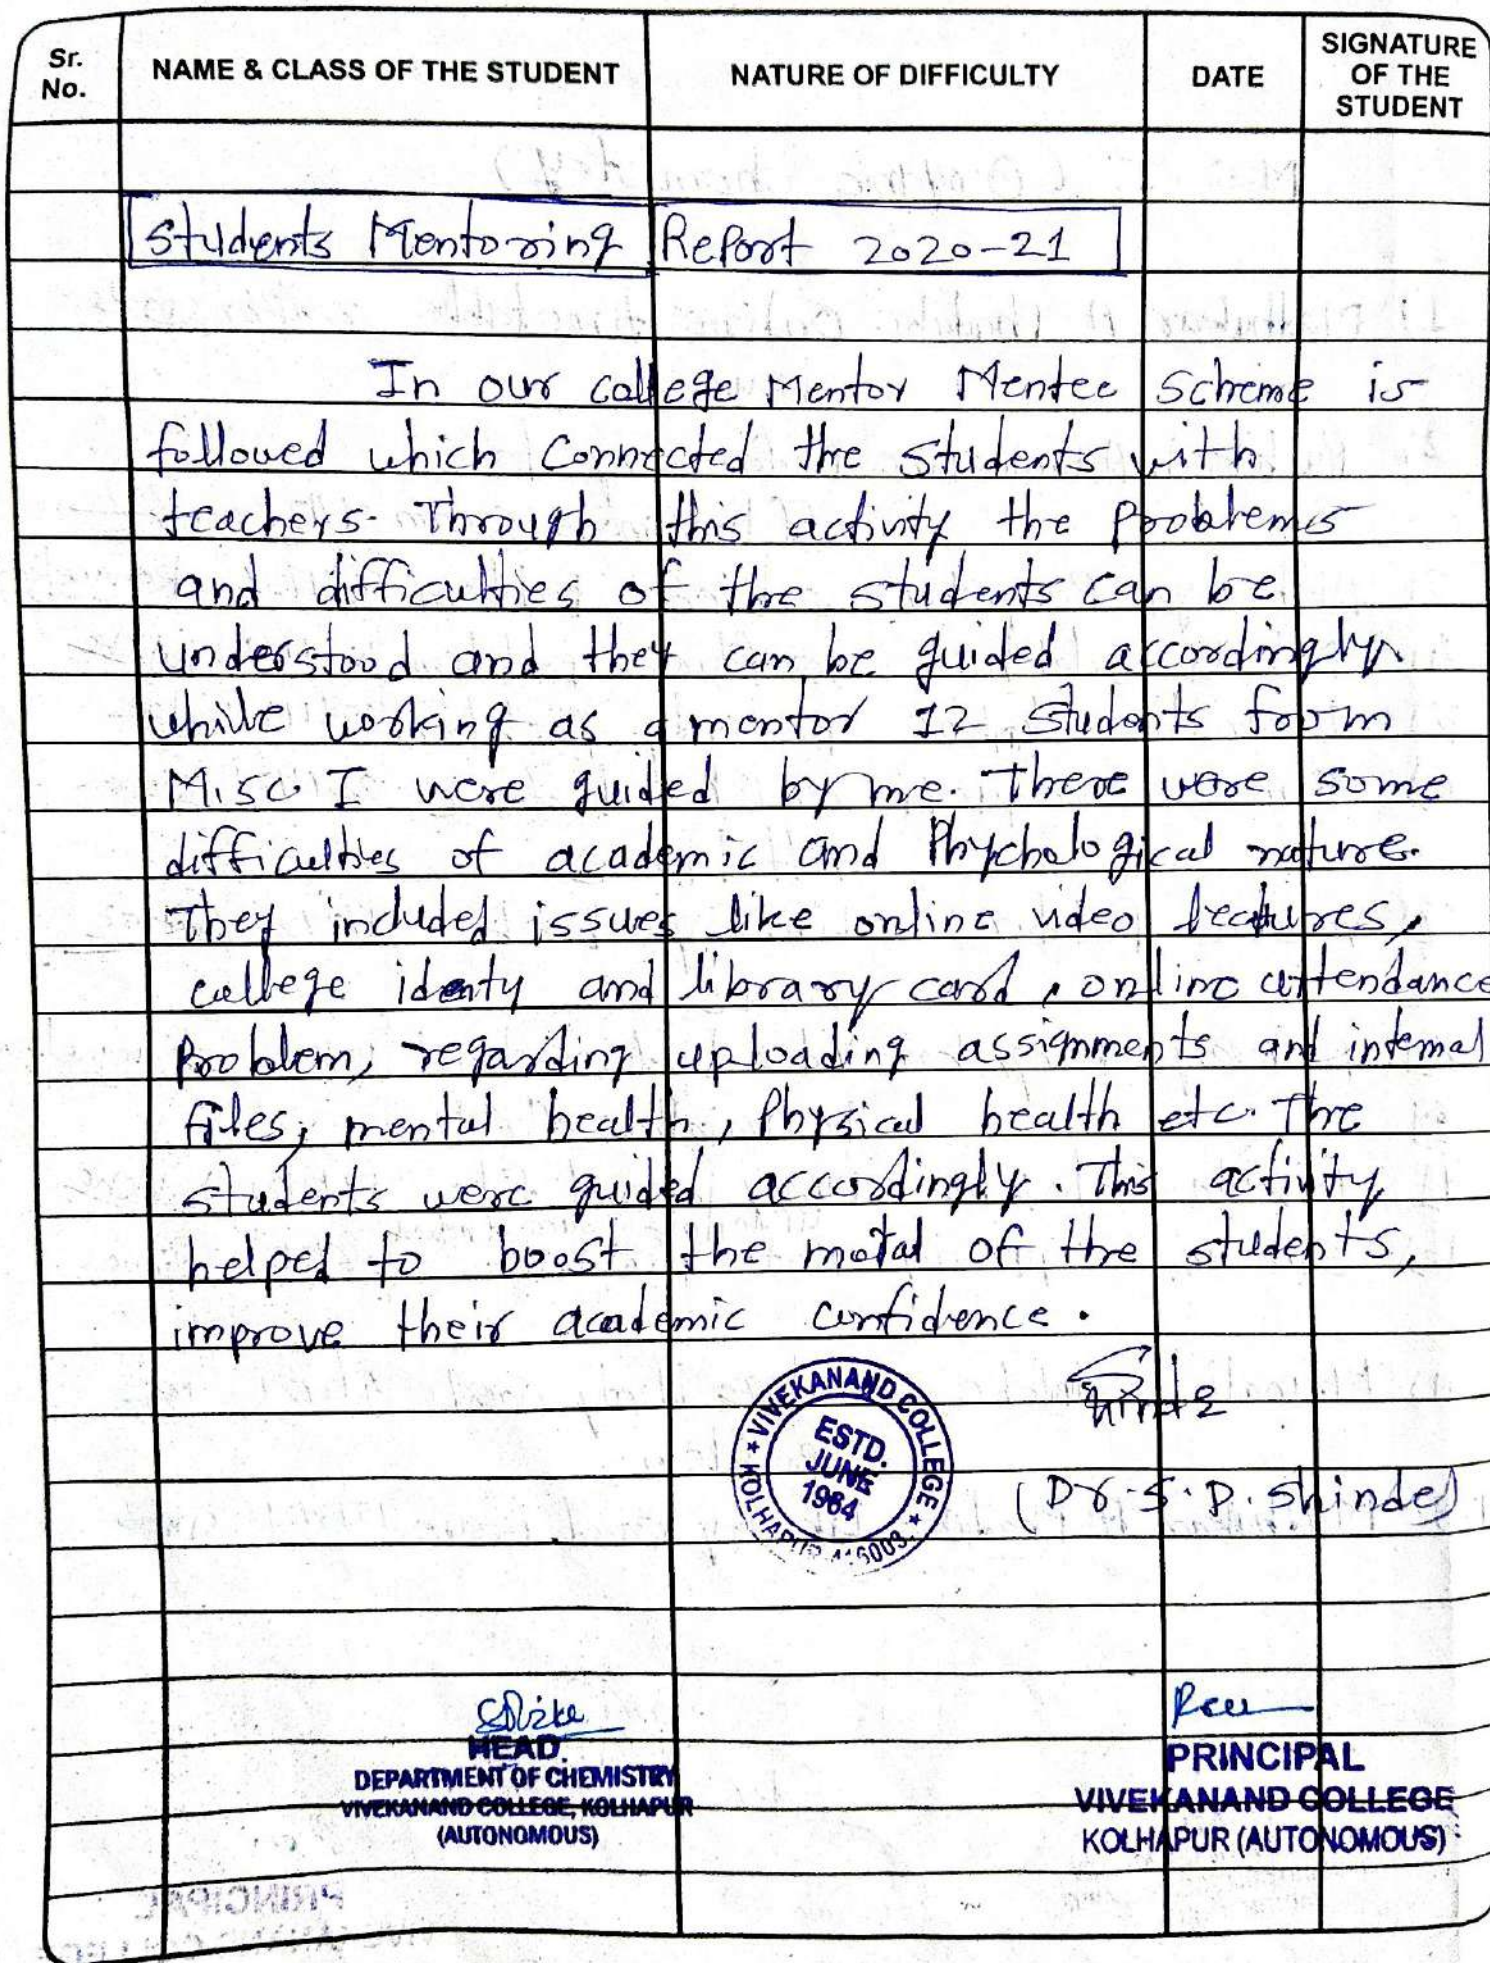 Sr. No.
NAME & CLASS OF THE STUDENT
NATURE OF DIFFICULTY
DATE
SIGNATURE OF THE STUDENT
Students Mentoring Report 2020-21
In our college Mentor Mentee Scheme is
followed which Connected the students with
teachers. Through this activity the Problems
and difficulties of the students can be
understood and they can be guided accordingly.
while working as a mentor 12 students from
M.Sc I were guided by me. There were some
difficulties of academic and Phychological nature.
They included issues like online video lectures,
college identy and library card, online attendance
Problem, regarding uploading assignments and internal
files, mental health, Physical health etc. The
students were guided accordingly. This activity
helped to boost the moral of the students,
improve their academic confidence.
VIVEKANAND COLLEGE
ESTD.
JUNE
1964
KOLHAPUR 416003.
(Dr. S. D. Shinde)
HEAD.
DEPARTMENT OF CHEMISTRY
VIVEKANAND COLLEGE, KOLHAPUR
(AUTONOMOUS)
PRINCIPAL
VIVEKANAND COLLEGE
KOLHAPUR (AUTONOMOUS)